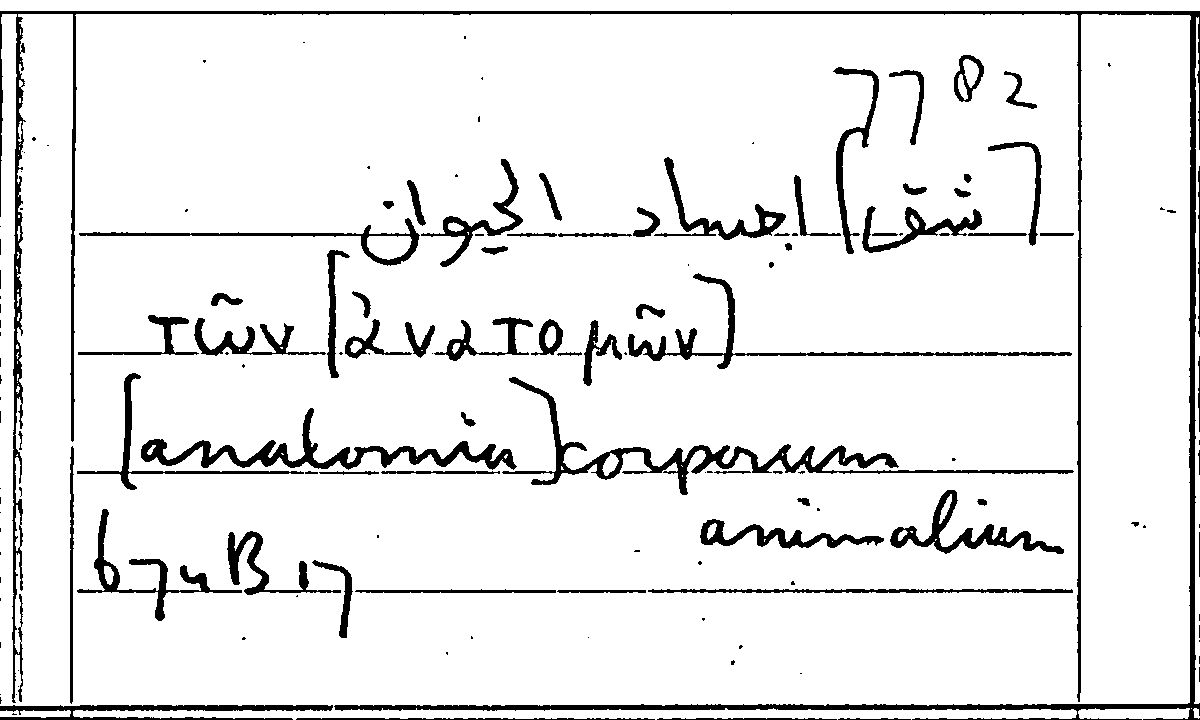 7782
[شق] اجساد الحيوان
τῶν [ἀνατομῶν]
[anatomia] corporum
animalium
674 B 17